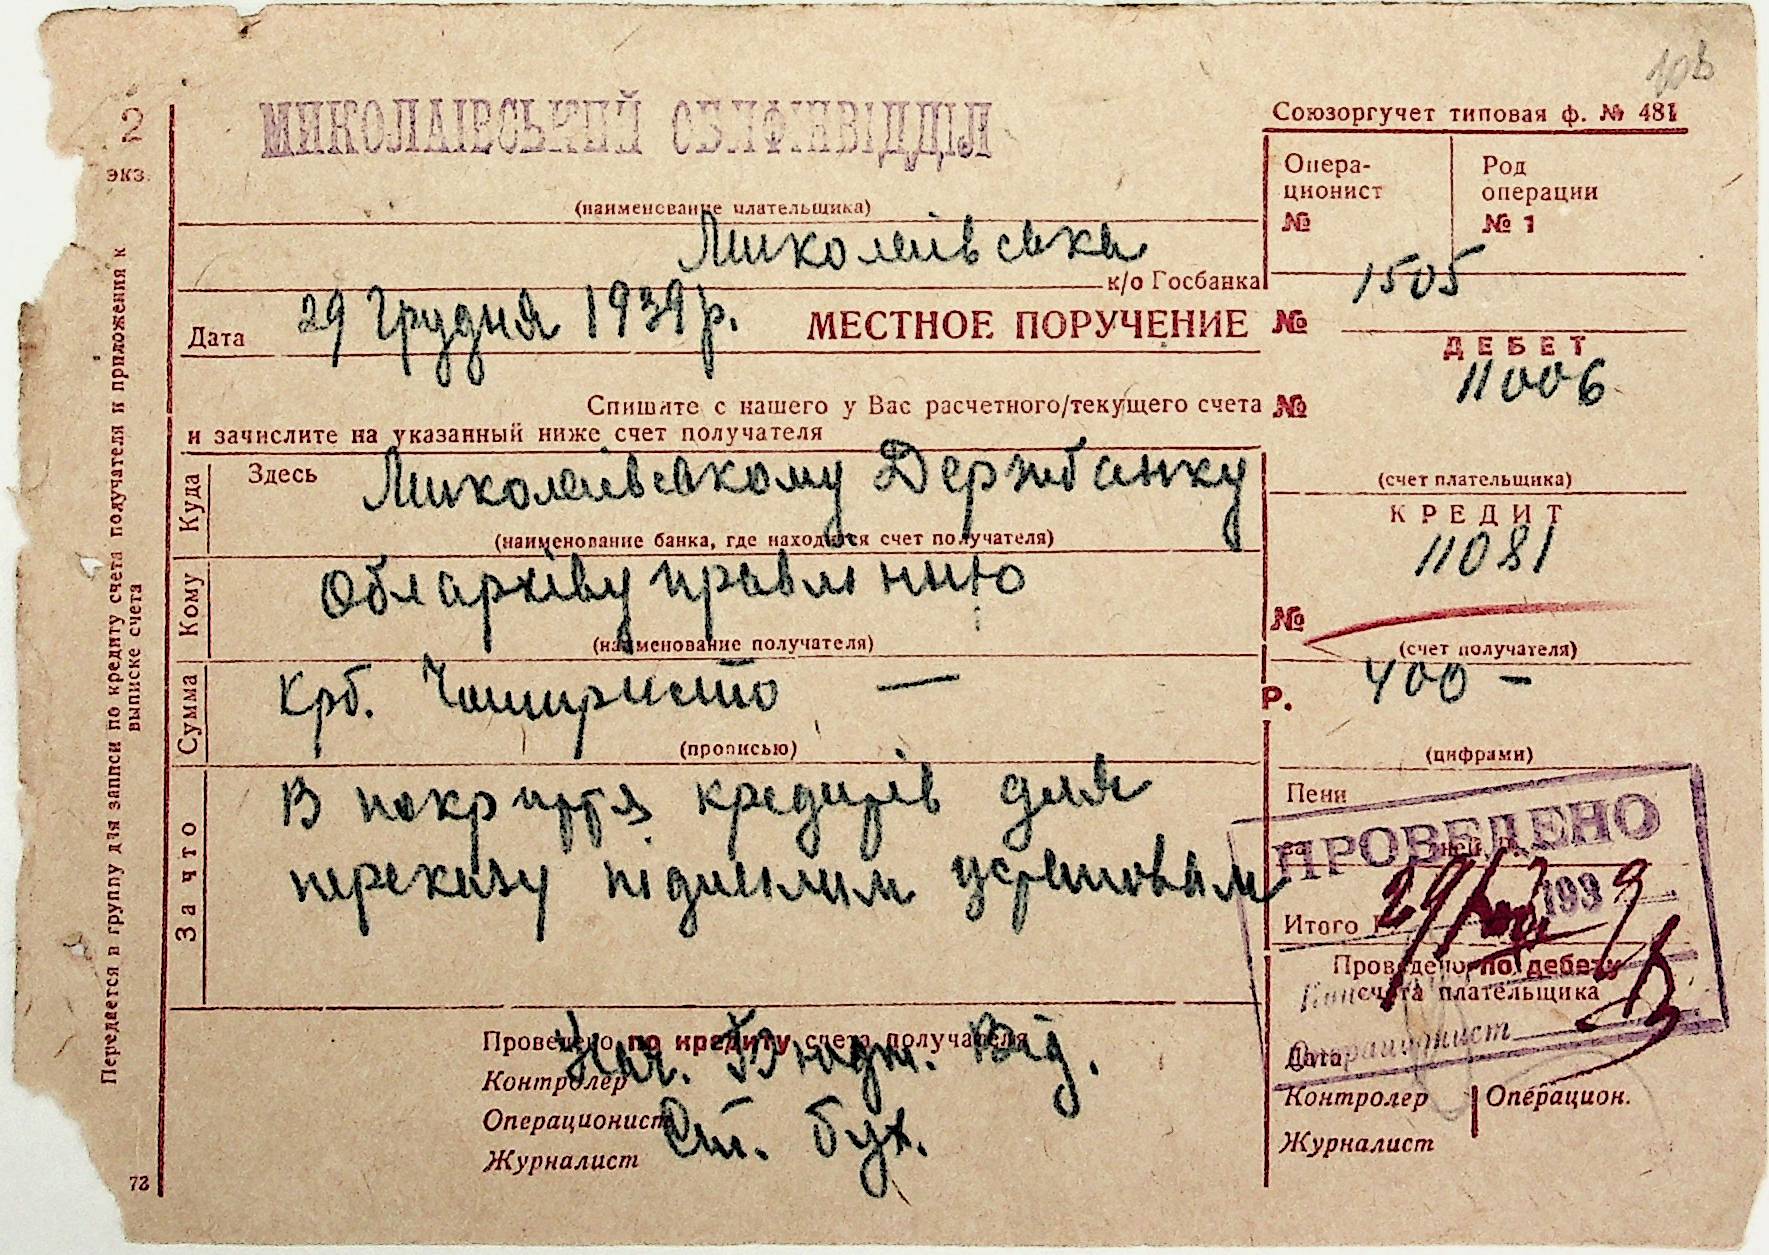 108
2
экз.
МИКОЛАІВСЬКИЙ ОБЛФІНВІДДІЛ
Союзоргучет типовая ф. № 481
(наименование плательщика)
Опера-
ционист
№
Род
операции
№ 1
Миколаівська
к/о Госбанка
Дата 29 Грудня 1939 р. МЕСТНОЕ ПОРУЧЕНИЕ № 1505
ДЕБЕТ
11006
Спишите с нашего у Вас расчетного/текущего счета №
и зачислите на указанный ниже счет получателя
(счет плательщика)
Куда
Здесь Миколаівському Держбанку
(наименование банка, где находится счет получателя)
КРЕДИТ
11081
№
(счет получателя)
Кому
Облархівуправлінню
(наименование получателя)
Сумма
Крб. Чотириста —
(прописью)
Р. 400 -
(цифрами)
За что
В покриття кредитів для
переказу підвідомим установам
Пени
за дней
Итого
ПРОВЕДЕНО
29 1939
Проведено по дебету
счета плательщика
Операционист
Дата
Контролер
Операцион.
Журналист
Проведено по кредиту счета получателя
Контролер
Операционист
Журналист
Нач. Бюдж. Від.
Ст. бух.
Передается в группу для записи по кредиту счета получателя и приложения к
выписке счета
73